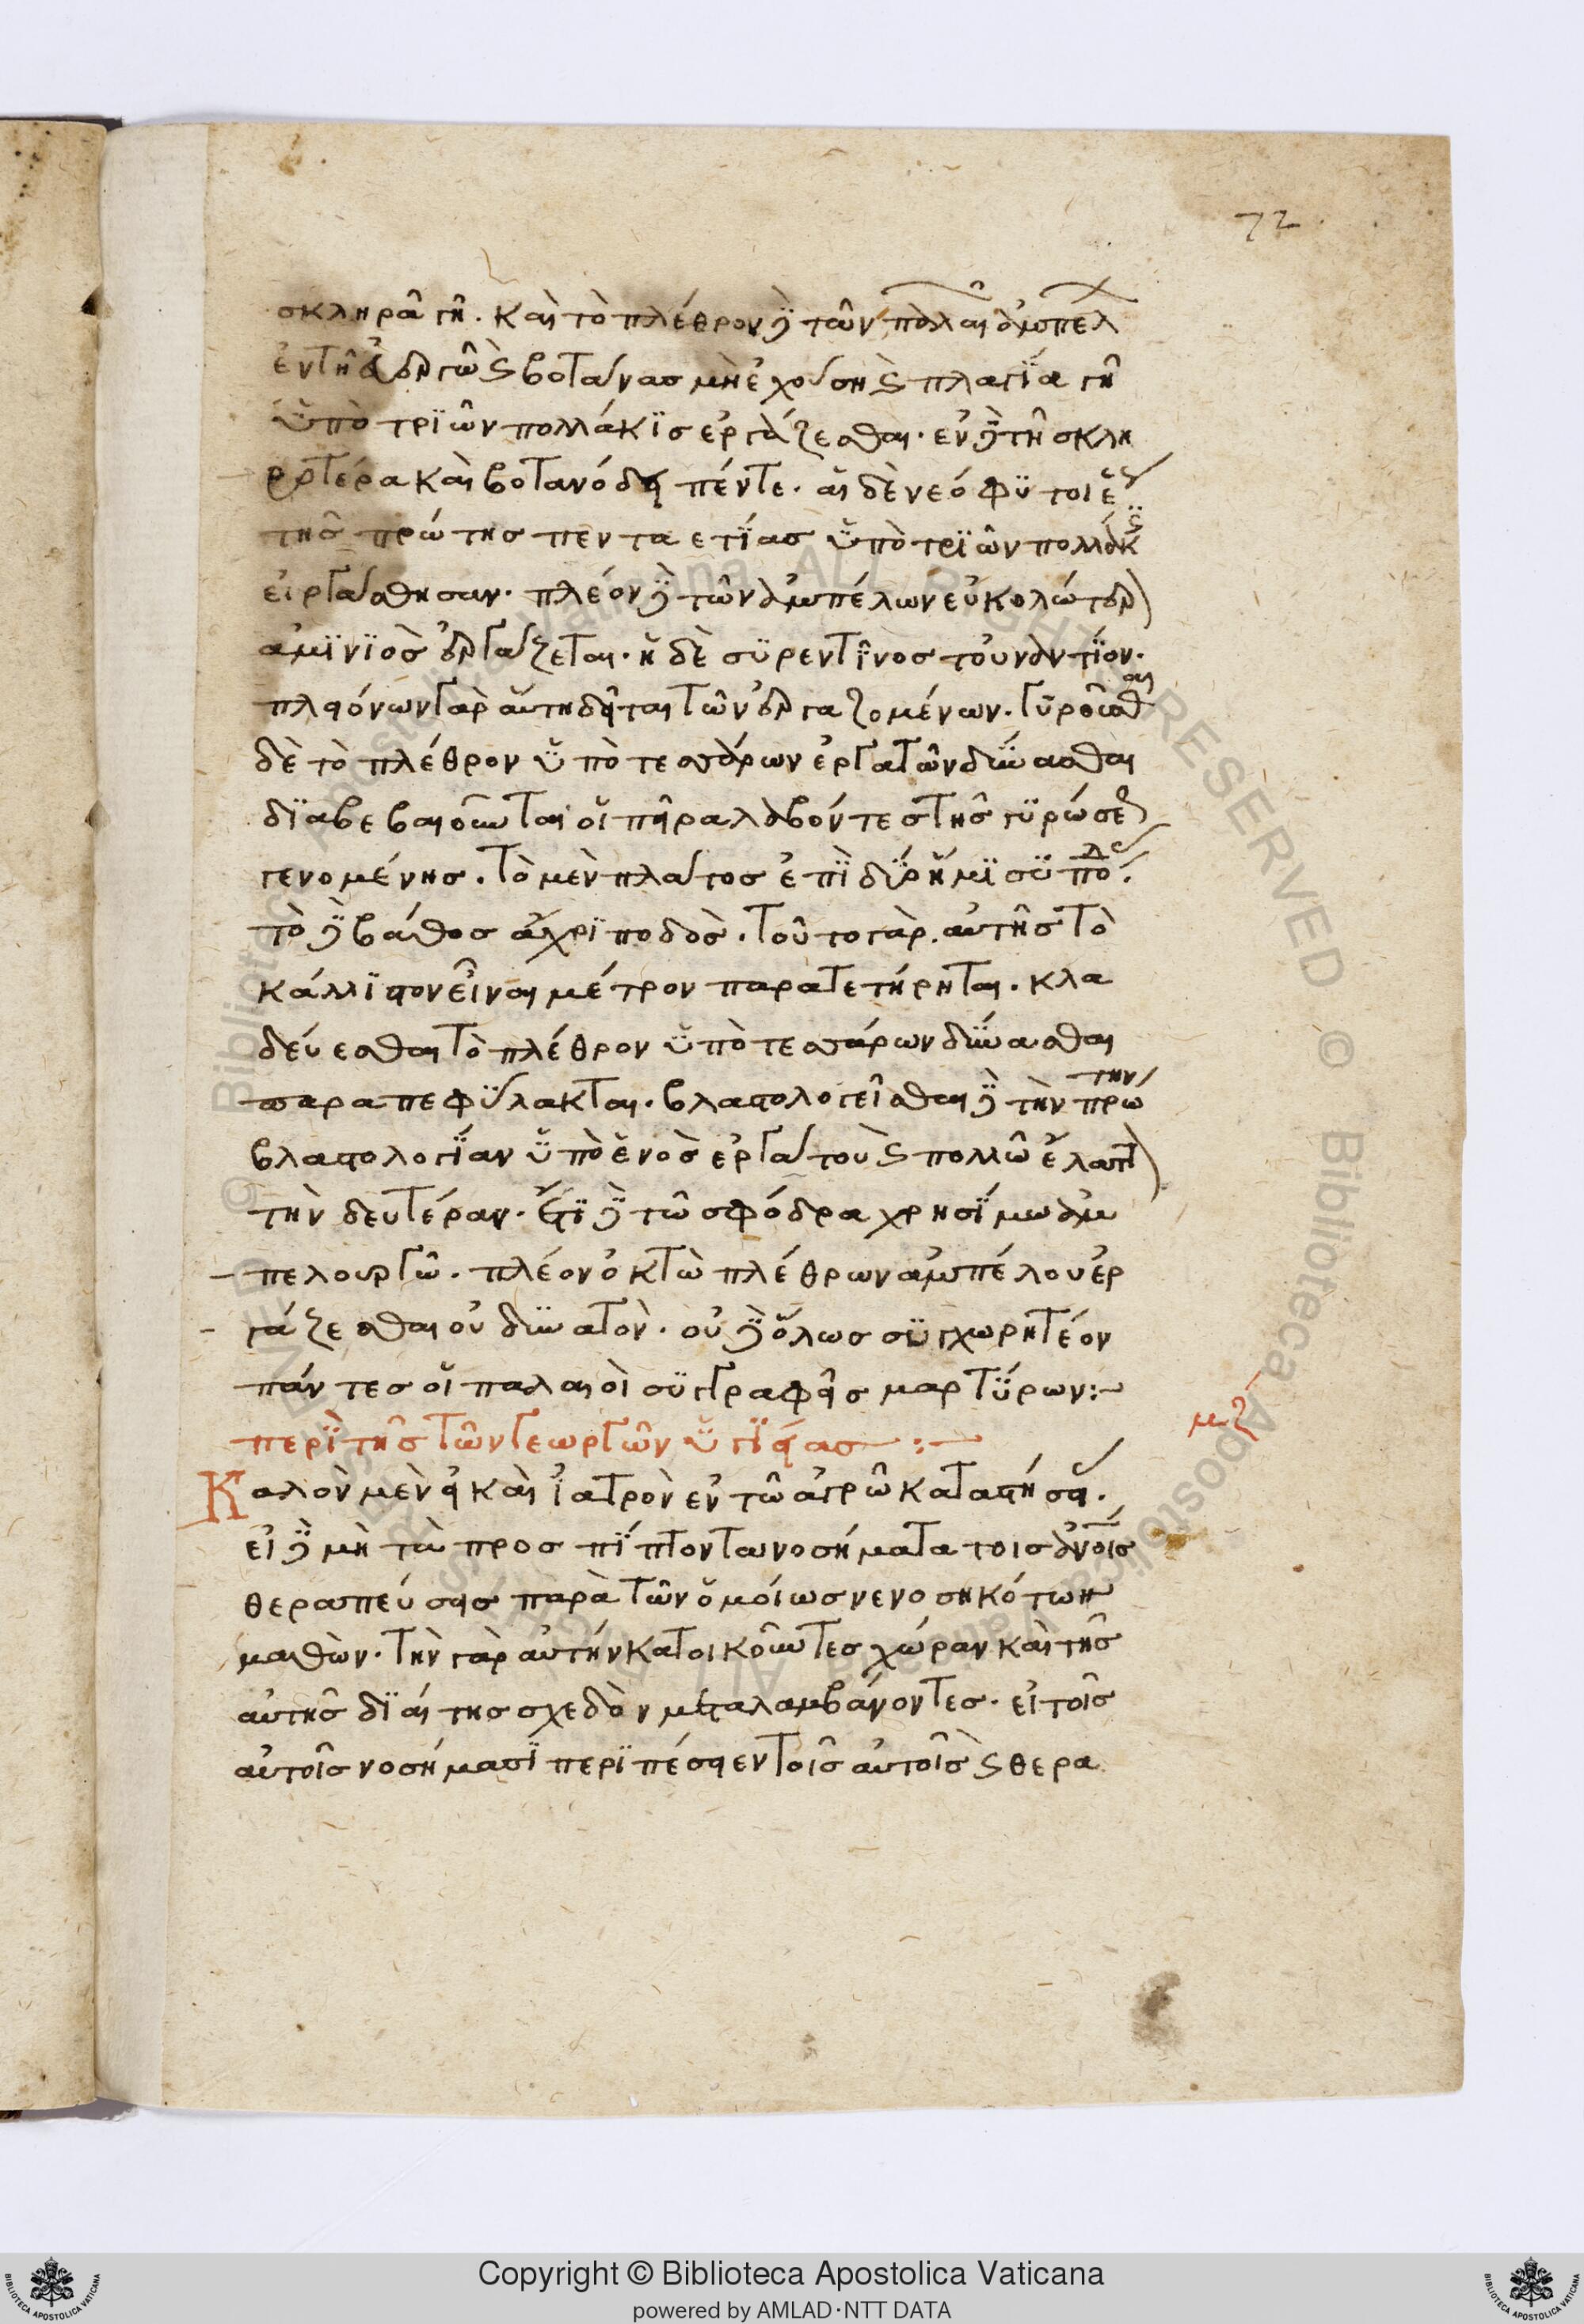 72
σκληρᾶ γῆ. καὶ τὸ πλέθρον δὲ τῶν παλαιῶν ἀμπέλ
ἐν τῆ ἐνεργῶ καὶ βοτάνας μὴ ἐχούση καὶ πλαγία γῆ
ὑπὸ τριῶν πολλάκις ἐργάζεσθαι. ἐν δὲ τῆ σκλη
ροτέρα καὶ βοτανώδει πέντε. αἱ δὲ νεόφυτοι ἕως
τῆς πρώτης πενταετίας ὑπὸ τριῶν πολλάκις
εἰργάσθησαν. πλέον δὲ τῶν ἀμπέλων εὐκολώτερ
ἀμινιὸς ἐργάζεται. ἡ δὲ συρεντῖνος τοὐναντίον.
πλειόνων γὰρ αὕτη δεῖται τῶν ἐργαζομένων. γυροῦσθαι
δὲ τὸ πλέθρον ὑπὸ τεσσάρων ἐργατῶν δύνασθαι
διαβεβαιοῦνται οἱ πεῖραν λαβόντες τῆς γυρώσεως
γενομένης. τὸ μὲν πλάτος ἐπὶ δύο ἥμισυ πόδας.
τὸ δὲ βάθος ἄχρι ποδὸς. τοῦτο γὰρ αὐτῆς τὸ
κάλλιστον εἶναι μέτρον παρατετήρηται. κλα
δεύεσθαι τὸ πλέθρον ὑπὸ τεσσάρων δύνασθαι
παραπεφύλακται. βλαστολογεῖσθαι δὲ τὴν πρώτην
βλαστολογίαν ὑπὸ ἑνὸς ἐργάτου καὶ πολλῶ ἔλαττ
τὴν δευτέραν. ἔτι δὲ τῶ σφόδρα χρησίμω ἀμ
πελουργῶ. πλέον ὀκτὼ πλέθρων ἀμπέλου ἐρ
γάζεσθαι οὐ δυνατὸν. οὐ δὲ ὅλως συγχωρητέον
πάντες οἱ παλαιοὶ συγγραφεῖς μαρτύρων:~
περὶ τῆς τῶν γεωργῶν ὑγιείας :~
μζ
Καλὸν μὲν εἰ καὶ ἰατρὸν ἐν τῶ ἀγρῶ καταστήσεις.
εἰ δὲ μὴ τὰ προσπίπτοντα νοσήματα τοῖς ἀνοις
θεραπεύσεις παρὰ τῶν ὁμοίως νενοσηκότων
μαθὼν. τὴν γὰρ αὐτὴν κατοικοῦντες χώραν καὶ τῆς
αὐτῆς διαίτης σχεδὸν μεταλαμβάνοντες. εἰ τοῖς
αὐτοῖς νοσήμασι περιπέσειεν τοῖς αὐτοῖς καὶ θερα
Copyright © Biblioteca Apostolica Vaticana
powered by AMLAD·NTT DATA